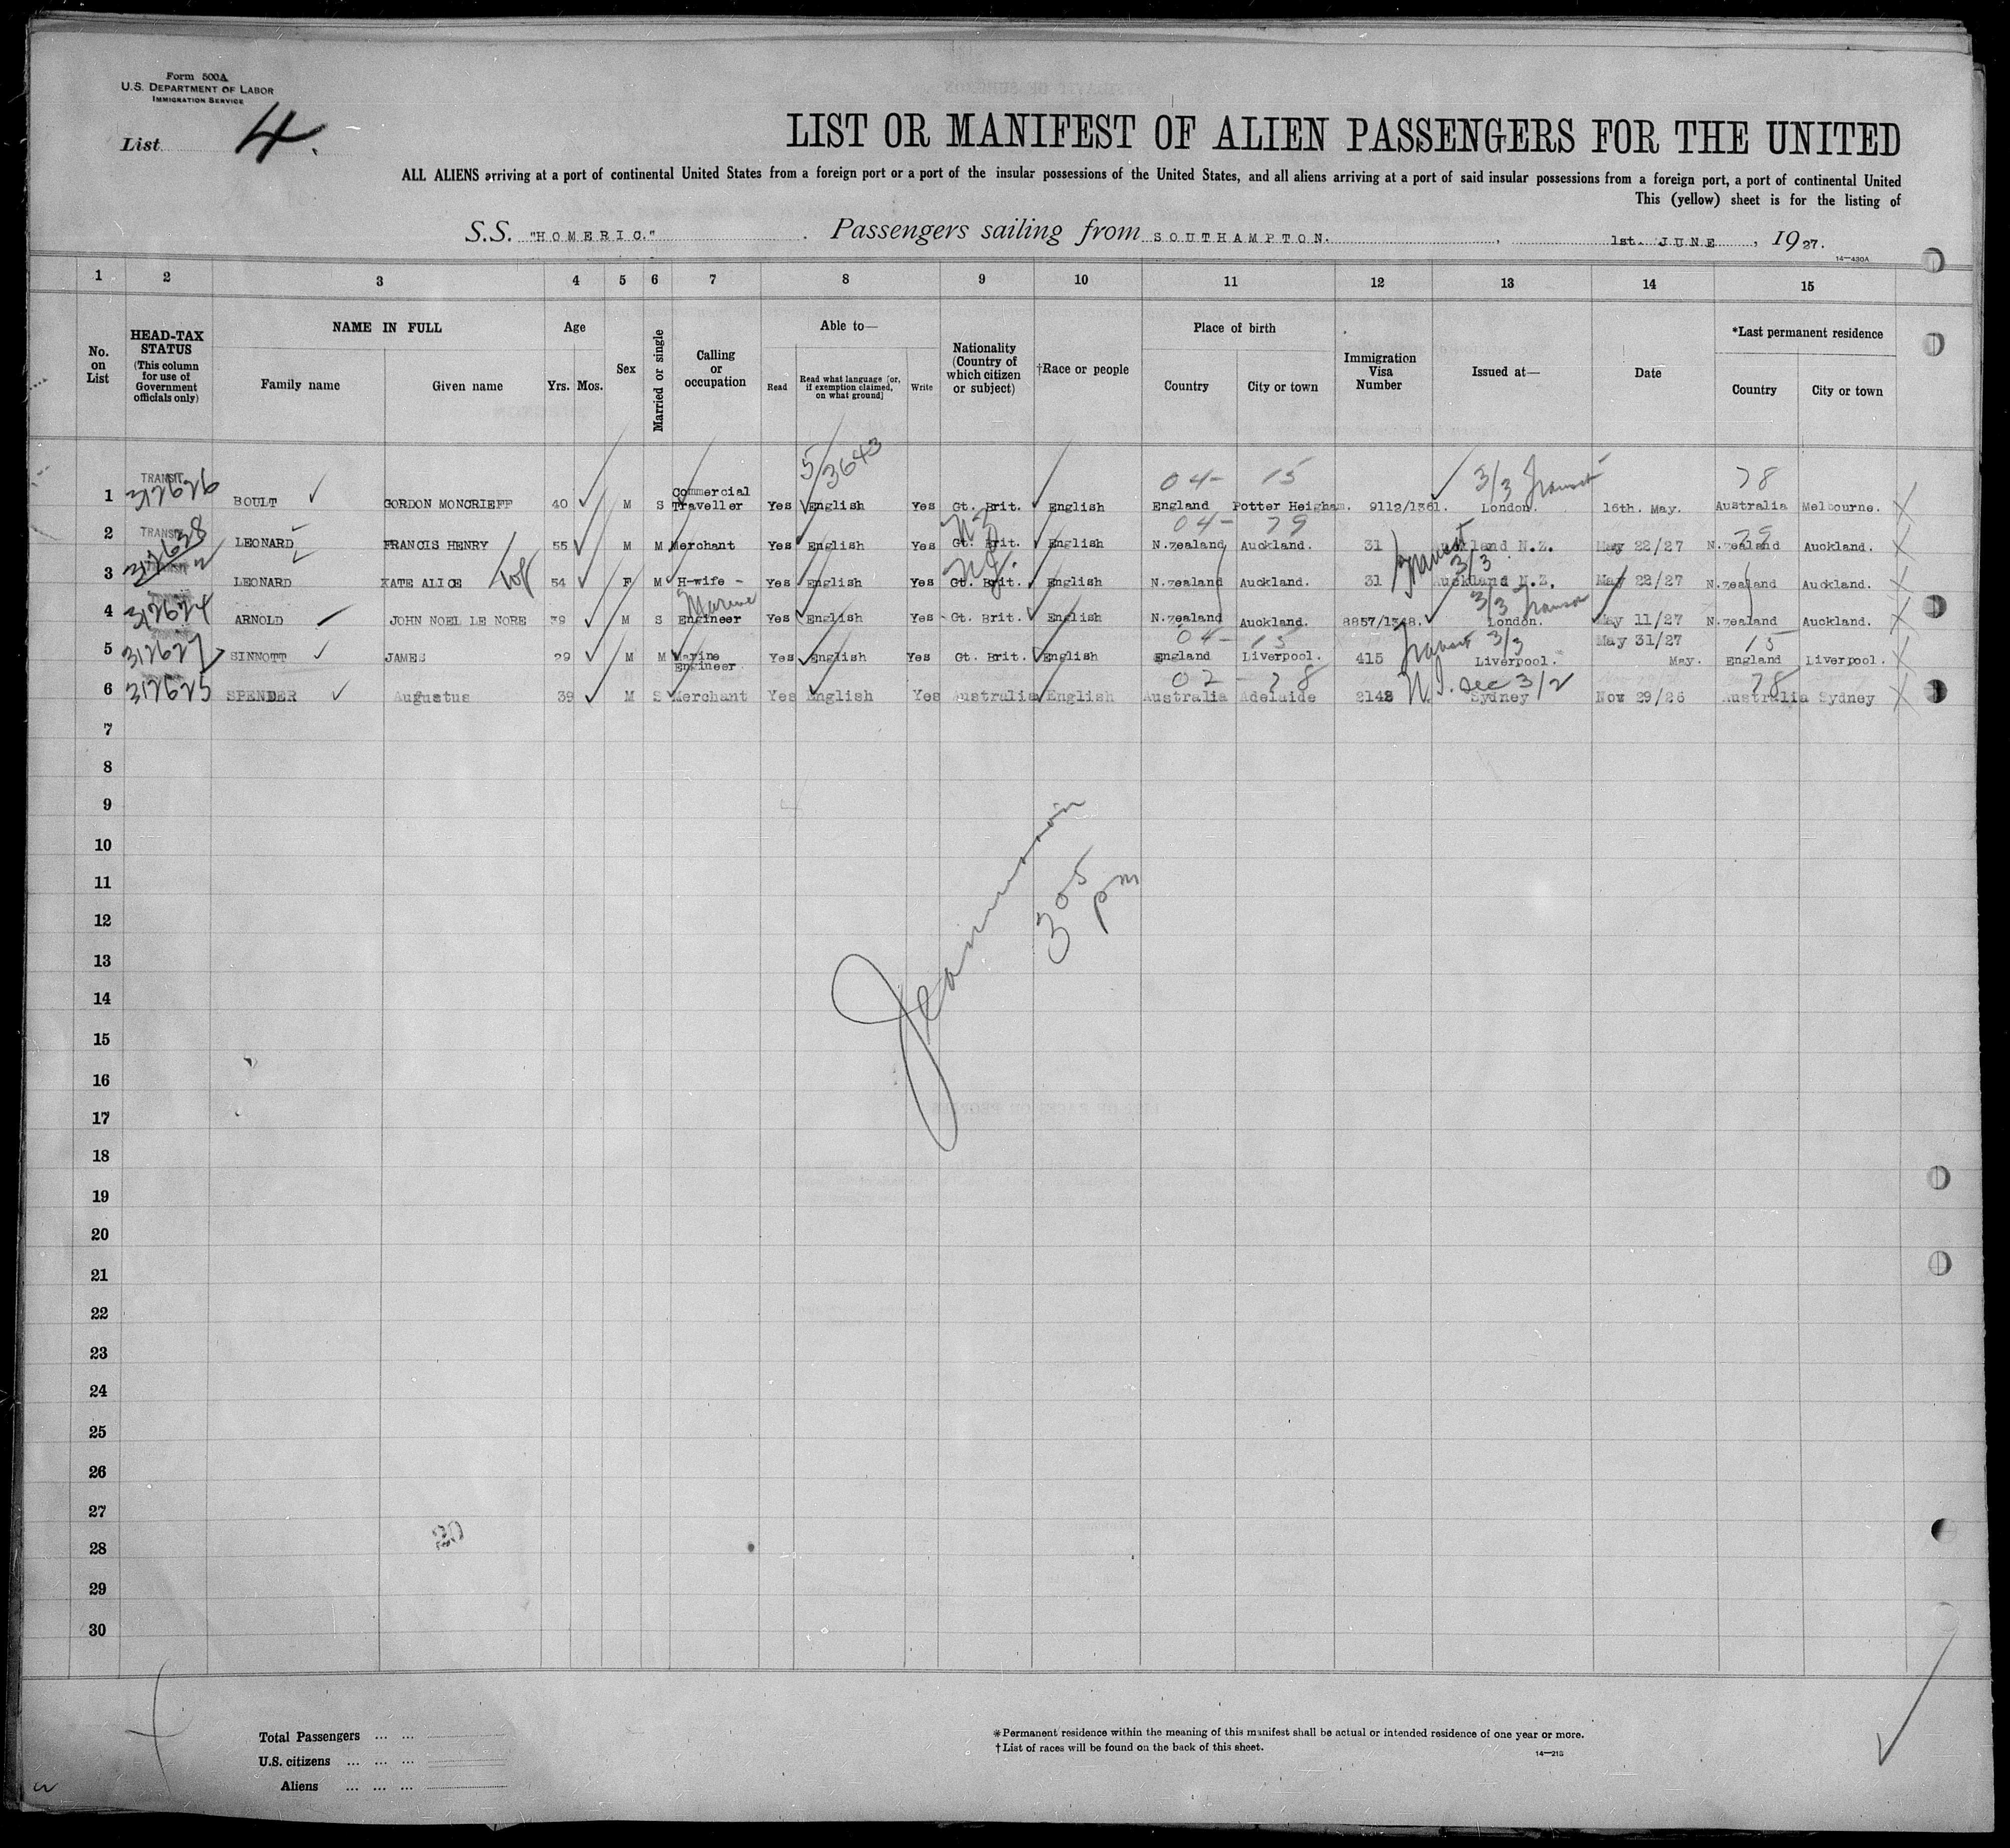 Form 500A
U.S. DEPARTMENT OF LABOR
IMMIGRATION SERVICE
List 4.
LIST OR MANIFEST OF ALIEN PASSENGERS FOR THE UNITED
ALL ALIENS arriving at a port of continental United States from a foreign port or a port of the insular possessions of the United States, and all aliens arriving at a port of said insular possessions from a foreign port, a port of continental United
This (yellow) sheet is for the listing of
S.S. "HOMERIC." Passengers sailing from SOUTHAMPTON. , 1st. JUNE , 1927.
14—430A
1 2 3 4 5 6 7 8 9 10 11 12 13 14 15
No. on List
HEAD-TAX STATUS (This column for use of Government officials only)
NAME IN FULL
Family name Given name
Age
Yrs. Mos.
Sex
Married or single
Calling or occupation
Able to—
Read Read what language [or, if exemption claimed, on what ground] Write
Nationality (Country of which citizen or subject)
†Race or people
Place of birth
Country City or town
Immigration Visa Number
Issued at—
Date
*Last permanent residence
Country City or town
5/3643
TRANSIT 04- 15 3/3 Transit 78
1 312626 BOULT GORDON MONCRIEFF 40 M S Commercial Traveller Yes English Yes Gt. Brit. English England Potter Heigham. 9112/1361. London. 16th. May. Australia Melbourne.
TRANSIT N.Z. 04- 79 79
2 LEONARD FRANCIS HENRY 55 M M Merchant Yes English Yes Gt. Brit. English N.zealand Auckland. 31 Auckland N.Z. May 22/27 N.zealand Auckland.
N.Z. Transit 3/3
3 LEONARD KATE ALICE 54 F M H-wife - Yes English Yes Gt. Brit. English N.zealand Auckland. 31 Auckland N.Z. May 22/27 N.zealand Auckland.
Marine 3/3 Transit
4 312624 ARNOLD JOHN NOEL LE NORE 39 M S Engineer Yes English Yes Gt. Brit. English N.zealand Auckland. 8857/1348. London. May 11/27 N.zealand Auckland.
04- 15 Transit 3/3 May 31/27 15
5 312627 SINNOTT JAMES 29 M M Marine Engineer Yes English Yes Gt. Brit. English England Liverpool. 415 Liverpool. May. England Liverpool.
02 - 78 sec 3/2 78
6 312625 SPENDER Augustus 39 M S Merchant Yes English Yes Australia English Australia Adelaide 2142 Sydney Nov 29/26 Australia Sydney
7
8
9
10
11
12
13
14
15
16
17
18
19
20
21
22
23
24
25
26
27
28
29
30
3 05 pm
Total Passengers ... ...
U.S. citizens ... ... ...
Aliens ... ... ...
*Permanent residence within the meaning of this manifest shall be actual or intended residence of one year or more.
†List of races will be found on the back of this sheet.
14—213